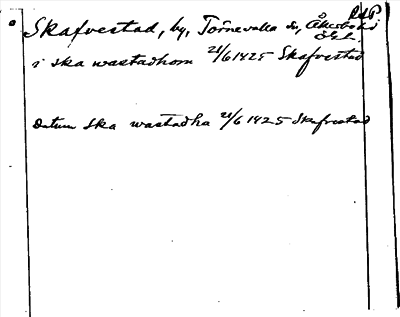 RAP.
Skafvestad, by, Törnevalla sn, Åkerbo hd
Ögl.
i ska wastadhom 21/6 1425 Skafvestad
Datum Ska wastadha 21/6 1425 Skafvestad